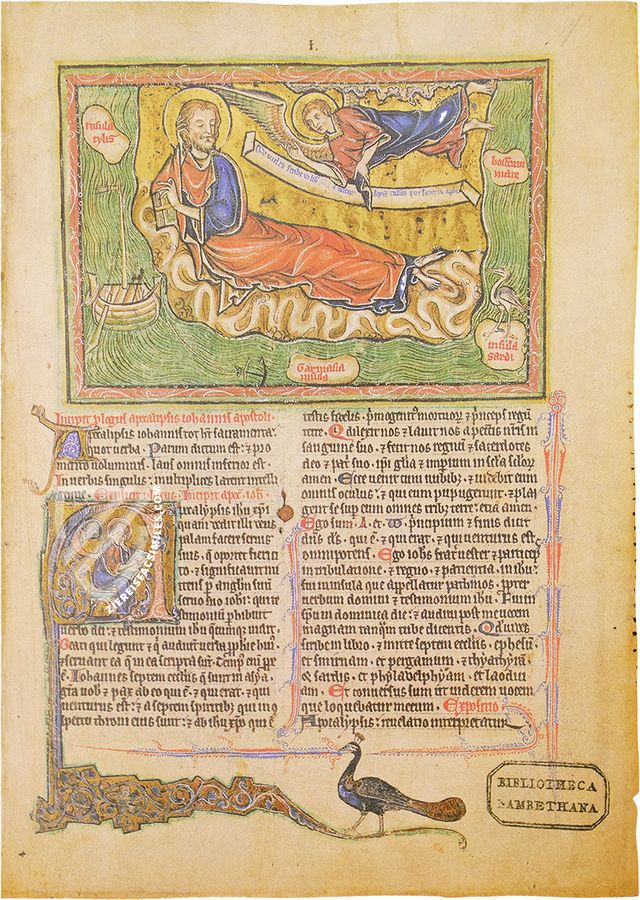 I.
insula
tylis
bosforum
mare
insula
sardi
Garmasia
insula
Incipit plogus apocalipsis iohannis apostoli
Apocalipsis iohannis tot ht sacramenta
quot verba. Parum dictum est & pro
merito voluminis. laus omnis inferior est.
In verbis singulis multiplices latent intelli
Explicit Incipit apoc ioh.
apocalipsis ihu xpi
quam dedit illi deus
palam facere servis
suis. q oportet fieri ci
to & significavit mit
tens p anglm suum
servo suo iohi. qui te
stimonium phibuit
verbo dei & testimonium ihu quecunque vidit.
Beati qui legunt & qi audiunt verba pphie hui
& servant ea qi in ea scripta sunt. Temp eni ppe
est. Iohannes septem ecclesiis que sunt in asya
gra vob & pax ab eo qui est & qui erat & qui
venturus est & a septem spiritibus qui in con
spectu throni eius sunt & ab ihu xpo qui e
testis fidelis. pmogenit mortuor & pnceps regu
terre. Qi dilexit nos & lavit nos a peccatis nris in
sanguine suo & fecit nos regnum & sacerdotes
deo & pat suo. ipi gla & imperium in scla sclor
amen. Ecce venit cum nubibus & videbit eum
omnis oculus & qui eum pupugerunt. & plan
gent se sup eum omnes tribus terre etiam amen.
Ego sum A et ω pncipium & finis dicit
dns ds. qui e & qui erat & qui venturus est
omnipotens. Ego iohs frater vester & particeps
in tribulatione & regno & patientia in ihu
fui in insula que appellatur pathmos ppter
verbum domini & testimonium ihu. Fui in
spu in dominica die & audivi post me vocem
magnam tanqm tube dicentis. Qd vides
scribe in libro & mitte septem ecclesiis. ephesum
et smirnam et pergamum et thyathyram
& sardis et phyladelphyam et laodici
am. Et conversus sum ut viderem vocem
que loquebatur mecum. Expositio
Apocalipsis revelatio interpretatur
ZIEREISFACSIMILES.COM
BIBLIOTHECA
LAMBETHANA